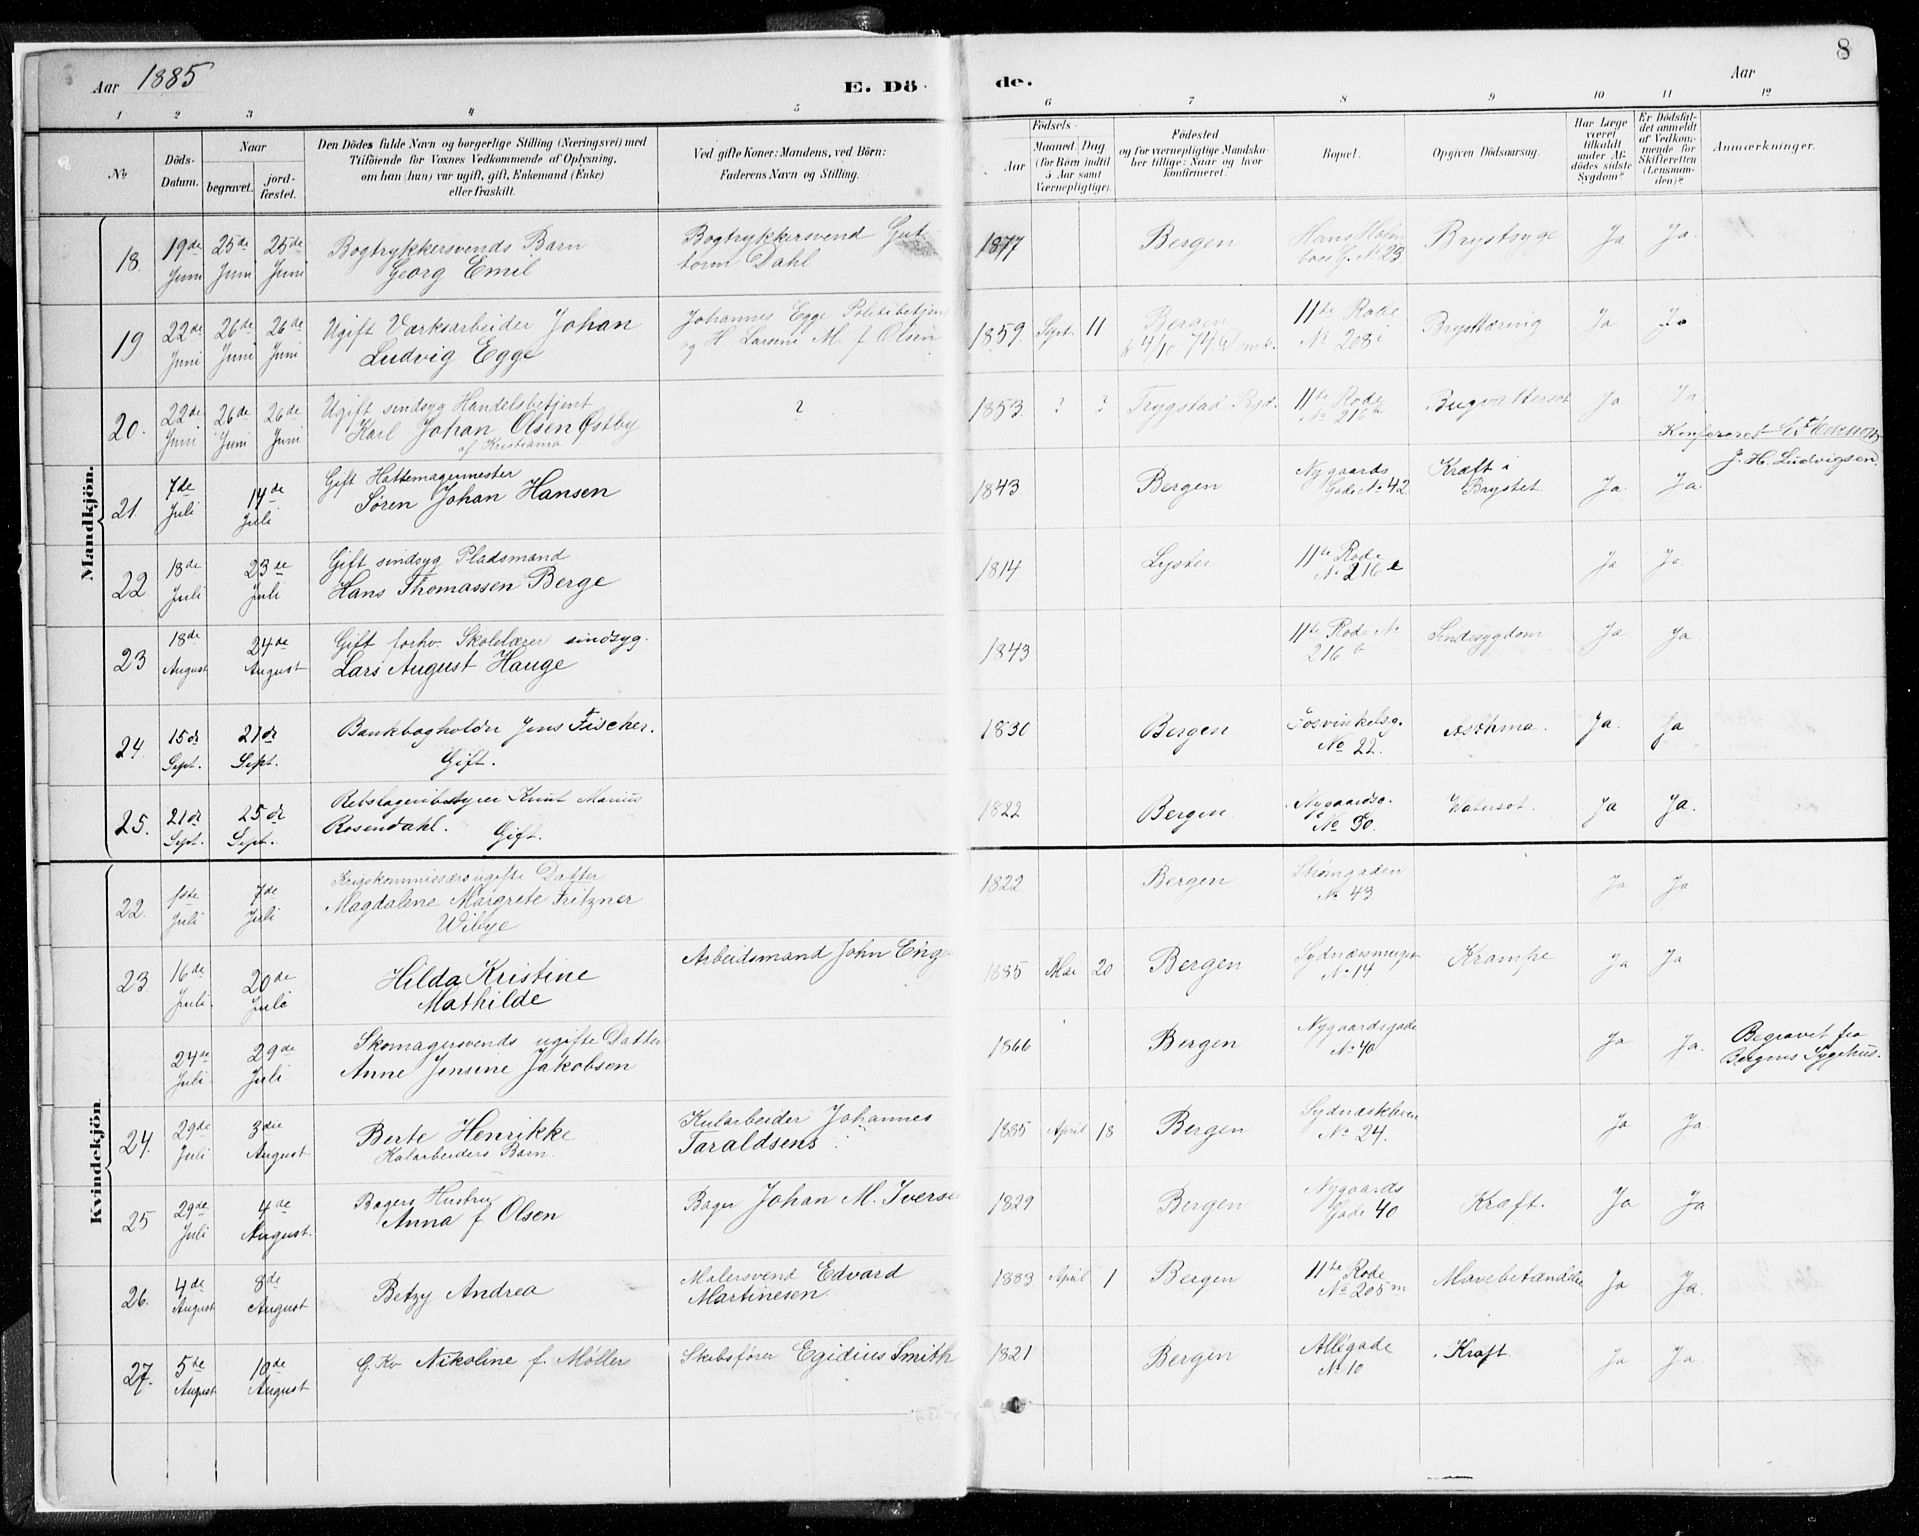 8
Aar 1885
E. Dö-
de.
Aar
1 2 3 4 5 6 7 8 9 10 11 12
No
Döds-Datum.
Naar
begravet.
jord-fæstet.
Den Dödes fulde Navn og borgerlige Stilling (Næringsvei) med
Tilföiende for Voxnes Vedkommende af Oplysning,
om han (hun) var ugift, gift, Enkemand (Enke)
eller fraskilt.
Ved gifte Koner: Mandens, ved Börn:
Faderens Navn og Stilling.
Födsels-
Aar
Maaned Dag
(for Börn indtil
5 Aar samt
Værnepligtige).
Födested
og for værnepligtige Mandska-
ber tillige: Naar og hvor
konfirmeret.
Bopæl.
Opgiven Dödsaarsag.
Har Læge
været
tilkaldt
under Af-
dödes sidste
Sygdom?
Er Dödsfal-
det anmeldt
af Vedkom-
mende for
Skifteretten
(Lensman-
den)?
Anmærkninger.
Mandkjön.
18. 19de Juni 25de Juni 25de Juni Bogtrykkersvends Barn
Georg Emil
Bogtrykkersvend Gut-
torm Dahl
1877 Bergen Hans Holm
boes G. No 23 Brystsyge Ja Ja.
19 22de Juni 26de Juni 26de Juni Ugift Værksarbeider Johan
Ludvig Egge
Johannes Egge Politibetjent
og H. Larsine M. f. Olsen
1859. Sept. 11 Bergen
k 4/10 74 Domk. 11te Rode
No 208 i Brysttæring Ja Ja
20. 22de Juni 26de Juni 26de Juni Ugift sindsyg Handelsbetjent
Karl Johan Olsen Østby
af Kristiania
?
1853 ? ? Trygstad Pgd. 11te Rode
No 216 b Bugvattersot Ja Ja
21 7de Juli 14de Juli Gift Hattemagermester
Søren Johan Hansen
1843 Bergen Nygaards
Gade No 42 Kræft i
Brystet. Ja. Ja.
J. H. Ludvigsen
22 18de Juli 23de Juli Gift sindsyg Pladsmand
Hans Thomassen Berge
1814 Lyster 11te Rode
No 216 e Ja Ja.
23 18de August 24de August Gift forhv. Skolelærer sindsyg.
Lars August Hauge
1843 11te Rode No
216 b Sindssygdom Ja Ja
24. 15de Sept. 21de Sept. Bankbogholder Jens Fischer.
Gift.
1830 Bergen Fosvinkelsg.
No 22. Asthma. Ja. Ja
25. 21de Sept. 25de Sept. Rebslageribestyrer Knut Marius
Rosendahl. Gift.
1822 Bergen. Nygaardsg.
No 50. Vatersot. Ja Ja.
Kvindekjön
22. 1ste Juli 7de Juli Krigskommissærs ugifte Datter
Magdalene Margrete Fritzner
Wibye
1822 Bergen Strømgaden
No 43 Ja Ja
23 16de Juli. 20de Juli Hilda Kristine
Mathilde
Arbeidsmand John Enge
1885 Mai 20 Bergen Sydnæssmuget
No 14 Krampe Ja Ja
24de Juli. 29de Juli Skomagersvends ugifte Datter
Anne Jensine Jakobsen
1866 Bergen Nygaardsgade
No 40 Ja Ja. Begravet fra
Bergens Sygehus.
24. 29de Juli 3die August Berte Henrikke
Kularbeiders Barn.
Kularbeider Johannes
Taraldsens
1885 April 18 Bergen Sydnæskleven
No 24. Ja Ja.
25 29de Juli 4de August. Bagers Hustru
Anna f. Olsen
Bager Johan M. Iversen
1829 Bergen Nygaards
Gade 40 Kræft. Ja Ja.
26. 4de August 8de August Betzy Andrea
Malersvend Edvard
Martinesen
1883 April 1 Bergen 11te Rode
No 205 m Mavebetændelse Ja Ja.
27. 5te August 10de August G. Kv Nikoline f. Møller
Skibsfører Egidius Smith
1821 Bergen Allégade
No 10 Kræft Ja Ja.